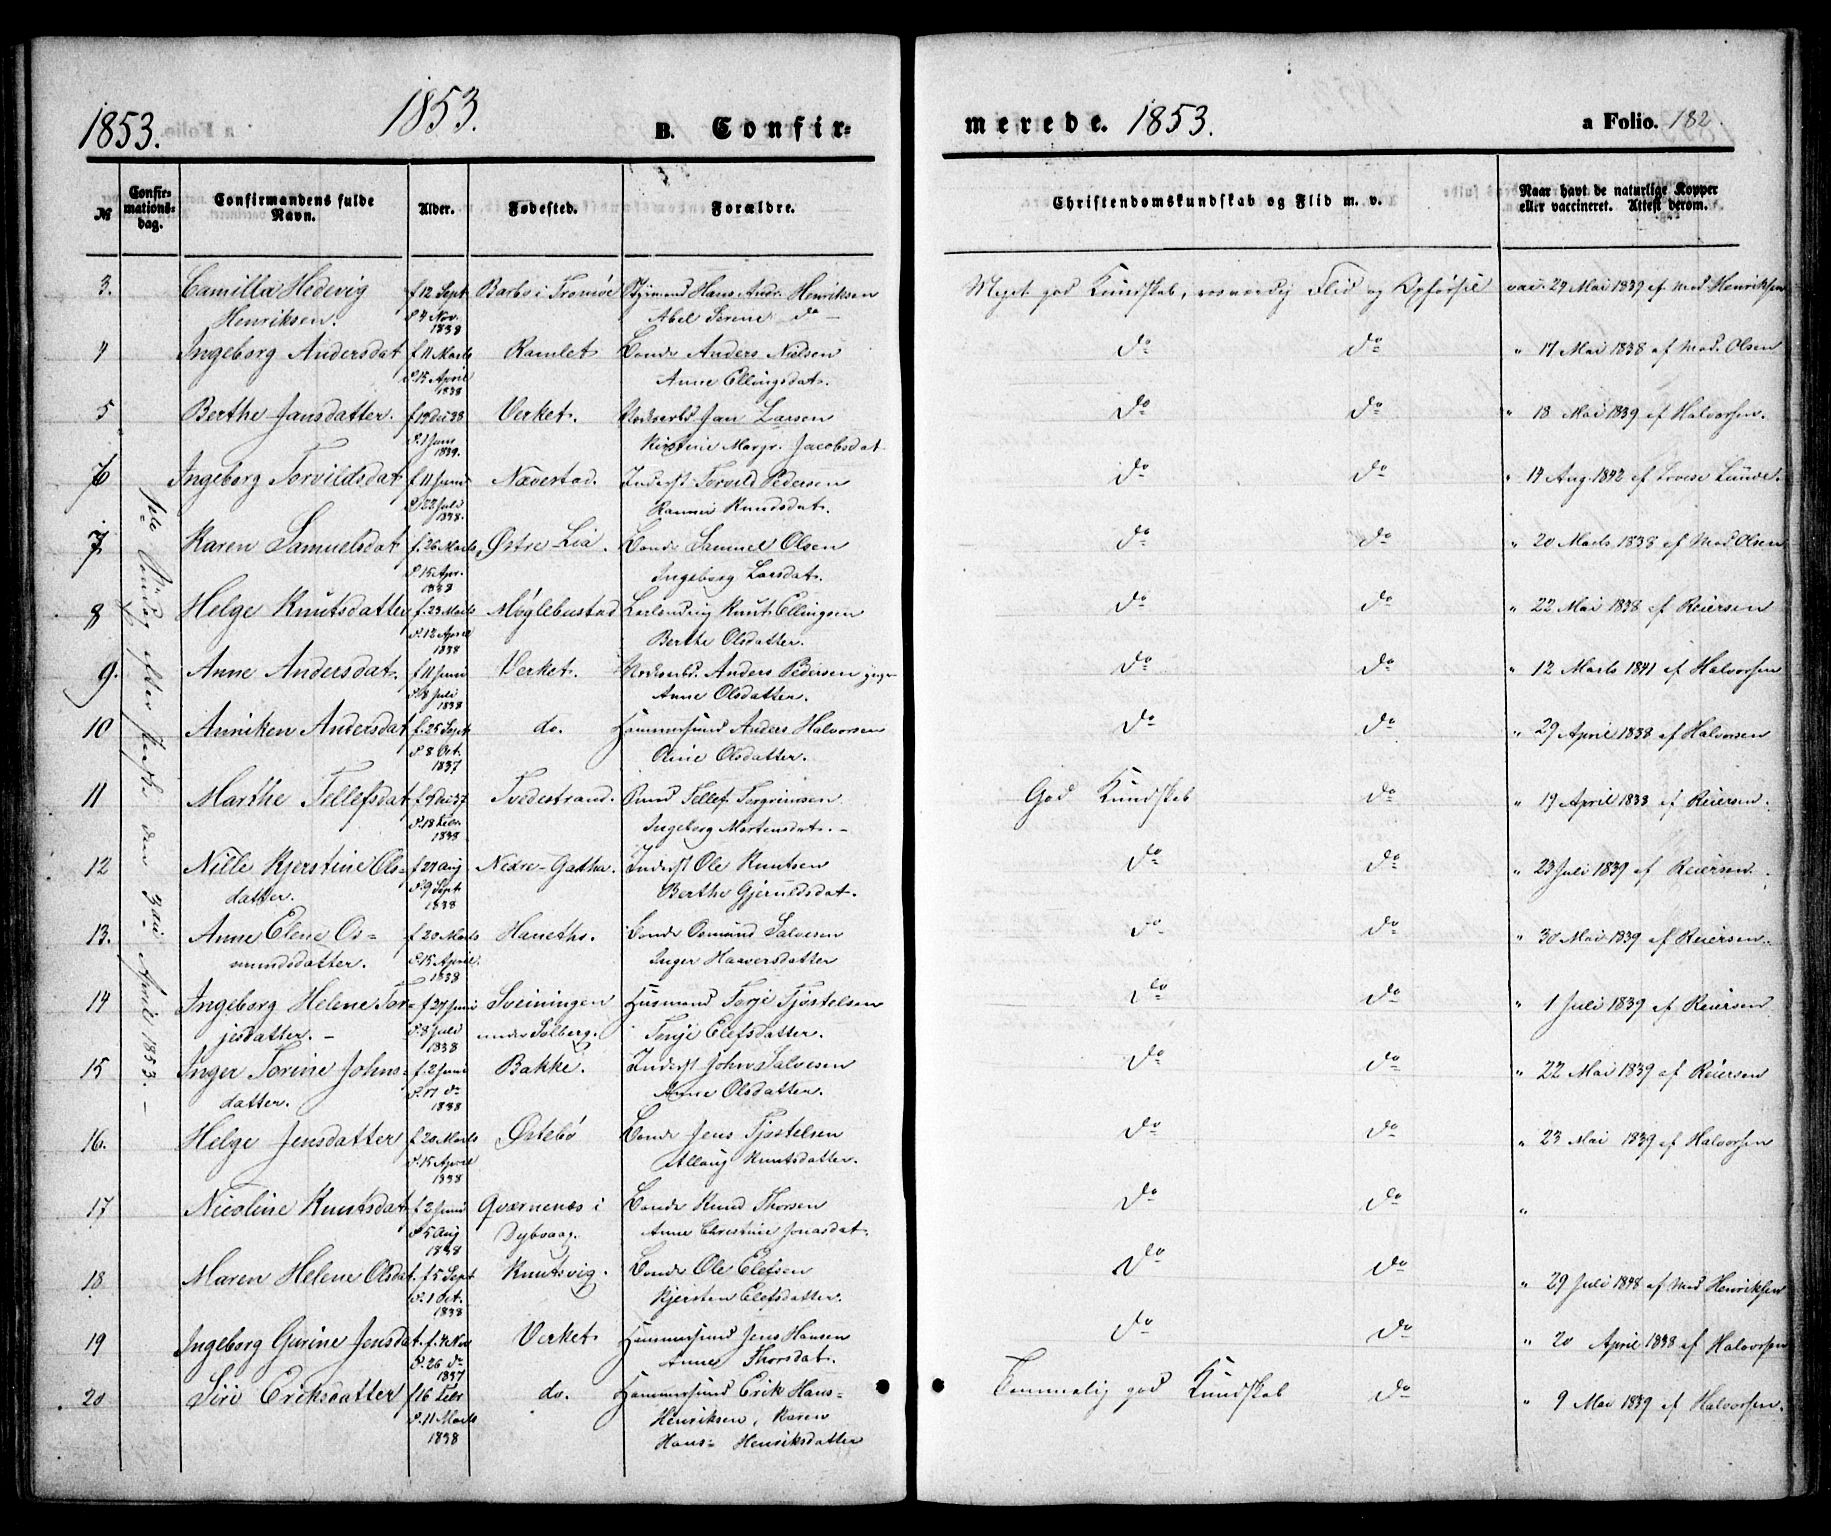 1853. 1853. B. Confir-
merede. 1853. a Folio. 182.
№ Confirmationsdag. Confirmandens fulde Navn. Alder. Fødested. Forældre.
Christendomskundskab og Flid m. v. Naar havt de naturlige Kopper eller vaccineret. Attest derom.
1ste Søndag efter Paaske den 3die April 1853. –
3. Camilla Hedevig f 12 Sept. Barbo i Tromøe Styrmand Hans Andr. Henriksen Meget god Kundskab, rosværdig Flid og Opførsel vac. 29 Mai 1839 af Mad Henriksen
Henriksen. d. 4 Nov. 1838 Abel Serene do –
4 Ingeborg Andersdat f 11 Marts Ramlet Bonde Anders Nielsen do do " 17 Mai 1838 af Mad. Olsen
d. 15 April 1838 Anne Ellingsdat.
5 Berthe Jansdatter. f 19 Dec 38 Verket. Jan Larsen do do " 18 Mai 1839 af Halvorsen.
d. 1 Janr 1839. Kirstine Margr. Jacobsdat
6 Ingeborg Torvildsdat f 11 Juni Næverstad. Inderst Torvild Pedersen do do " 14 Aug. 1842 af Lunde.
d. 22 Juli 1838. Knudsdat.
7 Karen Samuelsdat f. 26 Marts Østre Lia. Bonde Samuel Olsen do do " 20 Marts 1838 af Mad Olsen
d. 15 Apr. 1838 Ingeborg Larsdat.
8 Helge Knutsdatter f. 23 Marts Møglebustad Leilending Knut Ellingsen do do " 22 Mai 1838 af Reiersen
d. 12 April 1838 Berthe Olsdatter.
9. Anne Andersdat. f 11 Juni Verket. Anders Pedersen do do " 12 Marts 1841 af Halvorsen
d. 8 Juli 1838 Anne Olsdatter.
10 Anniken Andersdat f. 25 Sept do. Hammersmed Anders Halvorsen do do " 29 April 1838 af Halvorsen
d. 8 Oct. 1837 Olsdatter.
11 Marthe Tellefsdat f 9 Dec 37 Tvedestrand. Tellef Torgrimsen God Kundskab do " 19 April 1838 af Reiersen.
d. 18 Febr. 1838 Ingeborg Mortensdat. –
12 Nille Kjerstine Ols- f 27 Aug Nedre-Gaatha. Inderst Ole Knutsen do do " 23 Juli 1839 af Reiersen.
datter. d. 9 Sept 1838 Berthe Gjerulfsdat.
13. Anne Elene Os- f 20 Marts Haneths. Bonde Osmund Salvesen do do " 30 Mai 1839 af Reiersen.
mundsdatter. d. 15 April. 1838 Inger Haaversdatter
14 Ingeborg Helene Tor- f 27 Juni Sveiningen Husmand Torje Tjøstelsen do do " 1 Juli 1839 af Reiersen
jesdatter. – d. 8 Juli 1838 under Solberg. Elefsdatter.
15 Inger Torine Johns- f. 2 Juni Bakke. Inderst John Salvesen do do " 22 Mai 1839 af Reiersen
datter. d. 17 do 1838 Anne Olsdatter.
16. Helge Jensdatter f 20 Marts Østebø Bonde Jens Tjøstelsen do do " 23 Mai 1839 af Halvorsen
d. 15 April 1838 Knutsdatter.
17 Nicoline Knutsdat f 2 Juni Qvernenæs i Bonde Knud Thorsen do do "
d 5 Aug 1838 Dybvaag. Anne Christine Jonasdat.
18 Maren Helene Olsdat. f 5 Sept Knutsvig. Bonde Ole Elefsen do do " 29 Juli 1848 af Mad Henriksen
d. 1 Oct. 1838 Kjersten Elefsdatter.
19 Ingeborg Gurine Jensdat. f. 4 Nov Verket Hammersmed Jens Hansen do do " 20 April 1838 af Halvorsen
d. 26 do 1837 Anne Thorsdat.
20 Siri Eriksdatter f 16 Febr do. Hammersmed Erik Hans- Temmelig god Kundskab do " 9 Mai 1839 af Halvorsen.
d. 11 Marts 1838 Henriksen, Karen
Hans- Henriksdatter